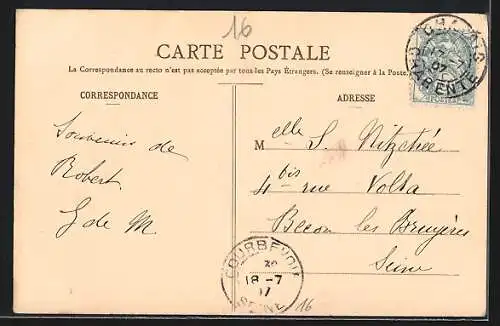 16
CARTE POSTALE
La Correspondance au recto n'est pas acceptée par tous les Pays Étrangers. (Se renseigner à la Poste.)
CORRESPONDANCE
ADRESSE
CHALAIS
07
CHARENTE
Souvenir de
Robert
G de M
Melle S. Nitzchée
4 bis rue Volta
Becon les Bruyères
Seine
COURBEVOIE
18 - 7
07
SEINE
16